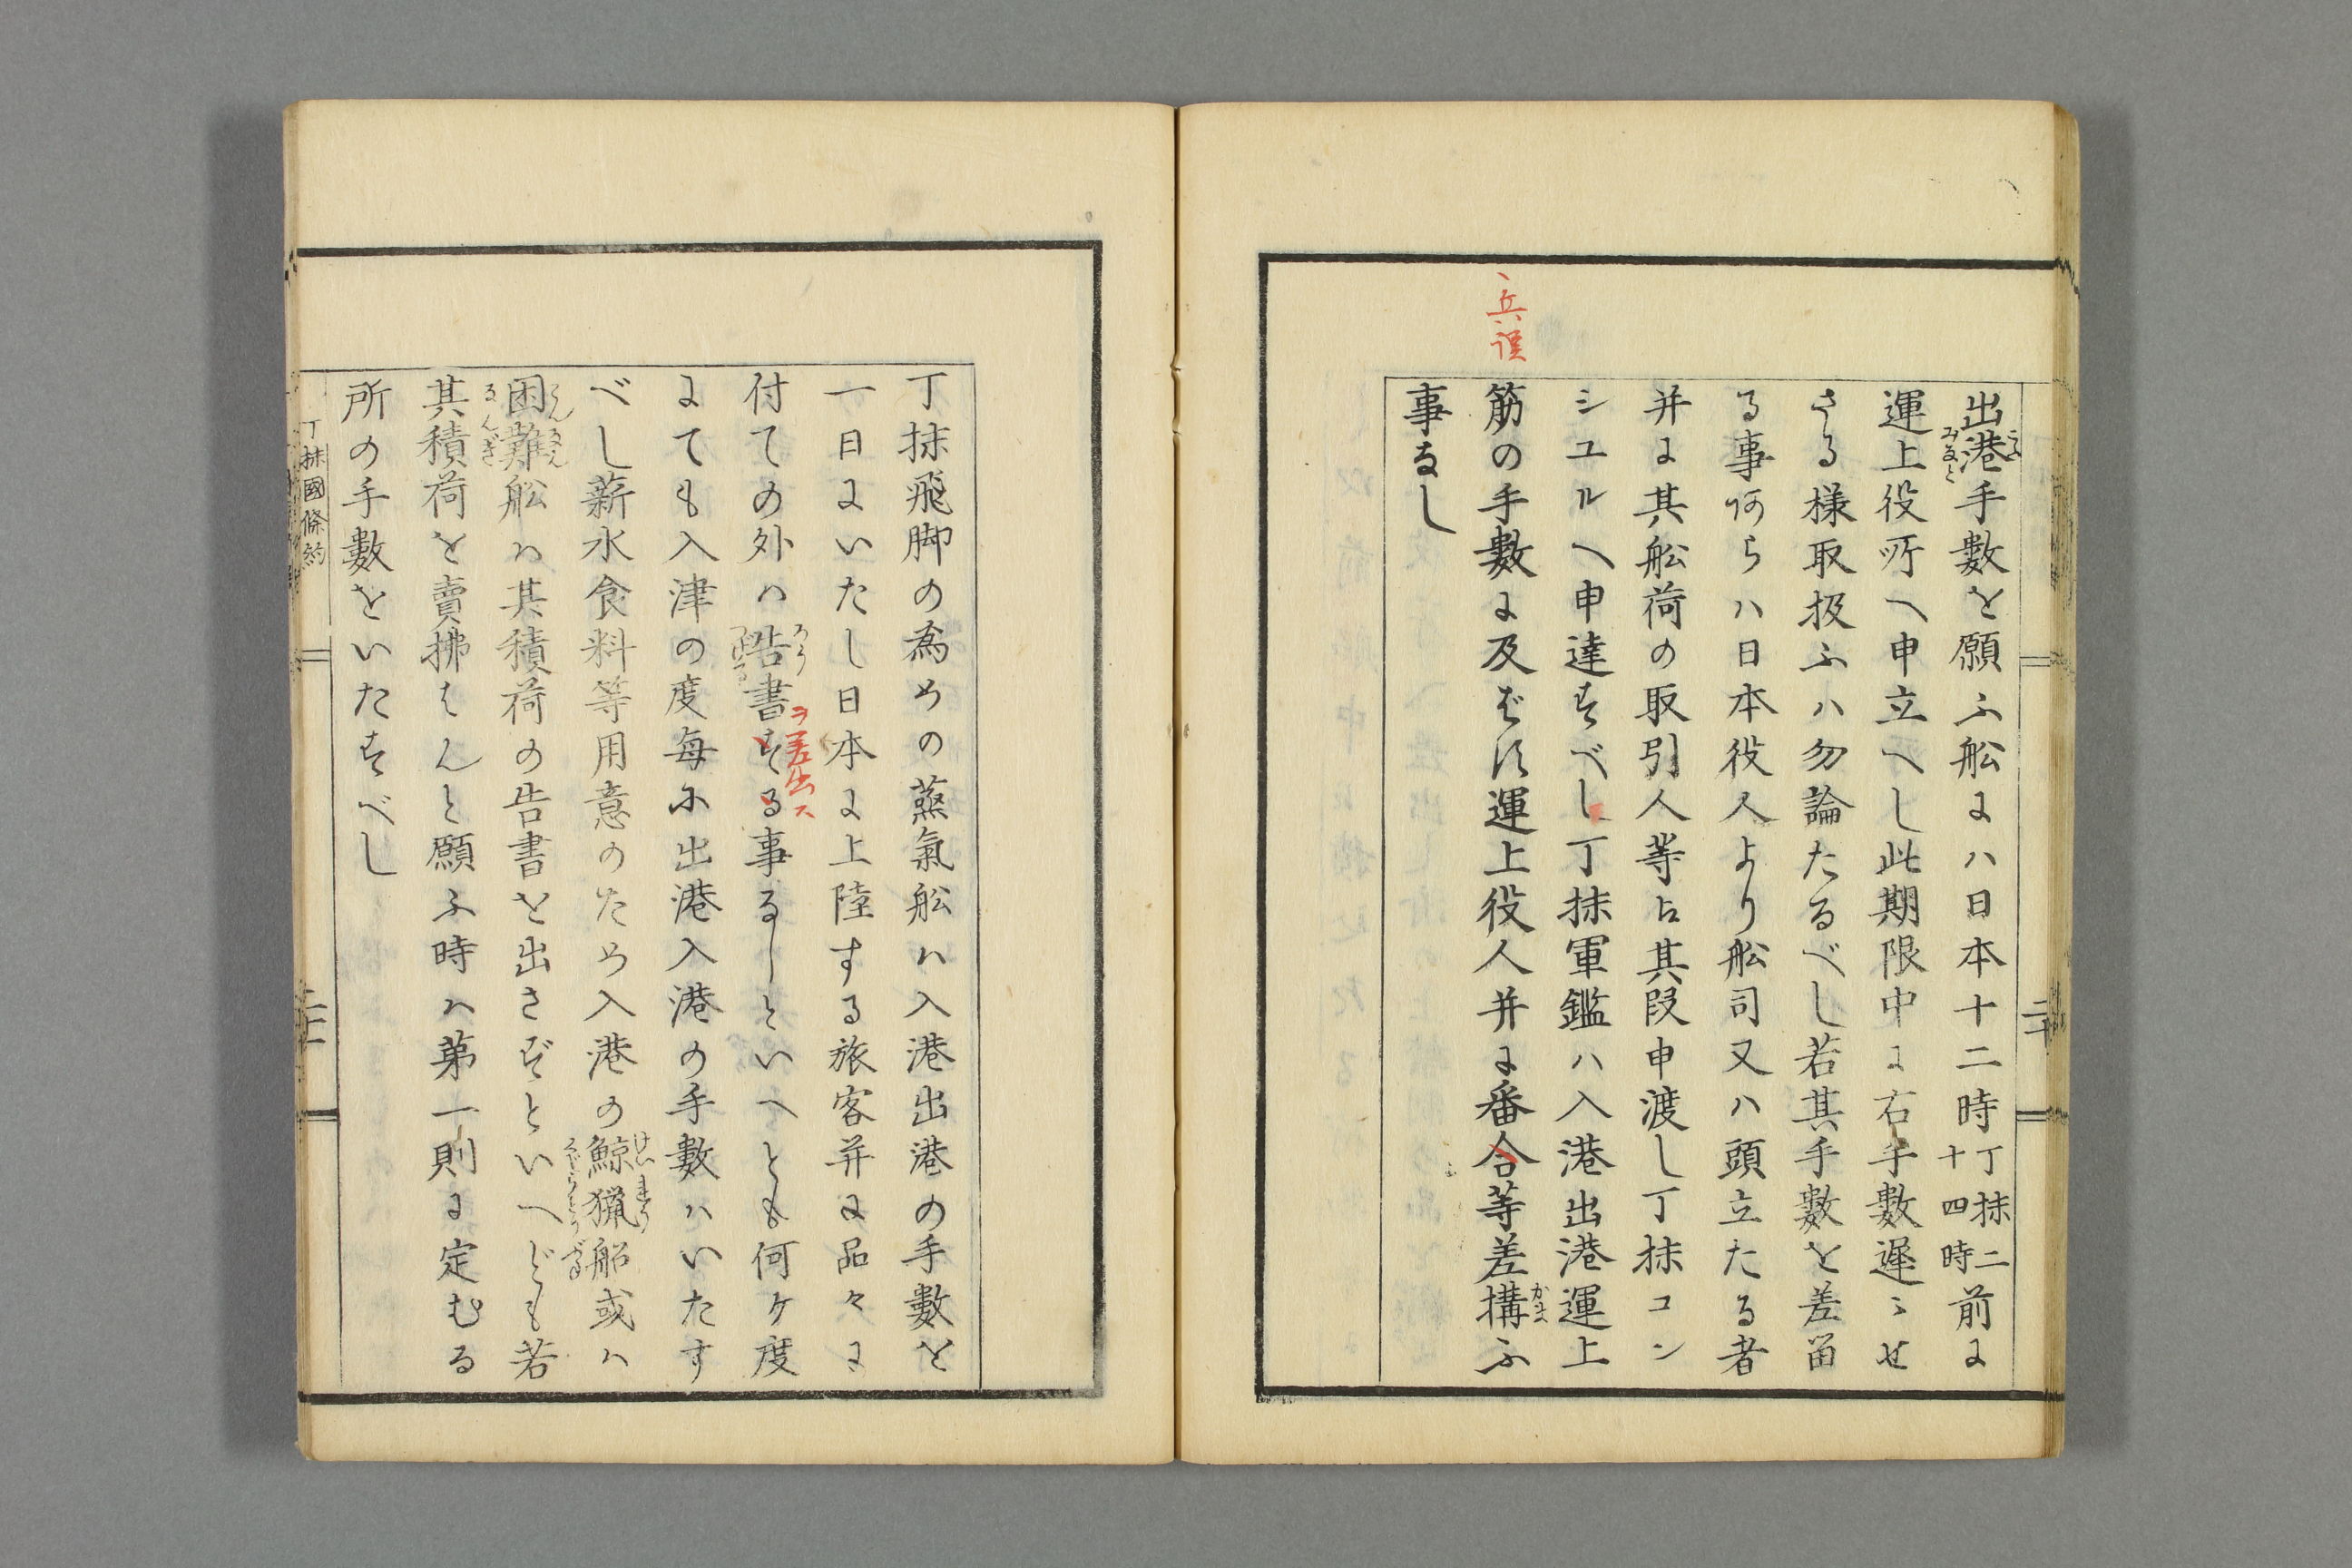 出港手數を願ふ舩にハ日本十二時丁抹二十四時前に
運上役所へ申立へし此期限中に右手數遲〻せ
さる様取扱ふハ勿論たるべし若其手數を差畄
る事阿らハ日本役人より舩司又ハ頭立たる者
并に其舩荷の取引人等占其段申渡し丁抹コン
シユルへ申達すべし丁抹軍鑑ハ入港出港運上
兵誤
筋の手數に及ばず運上役人并に番合等差構ふ
事なし
二十
丁抹飛脚の為めの蒸氣舩ハ入港出港の手數を
一日にいたし日本に上陸する旅客并に品々に
付ての外ハ誥書する事なしといへとも何ケ度
ヲ差出ス
にても入津の度毎に出港入港の手數ハいたす
べし薪水食料等用意のため入港の鯨猟船或ハ
困難舩ハ其積荷の告書を出さずといへども若
其積荷を賣拂はんと願ふ時ハ第一則に定むる
所の手數をいたすべし
丁抹國條約